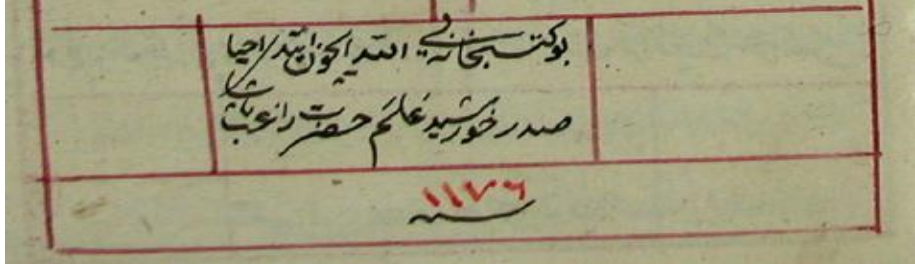 بو کتبخانه‌یی الله ایچون ایتدی احیا
صدر خورشید علم حضرت راغب پاشا
سنه ١١٧٦